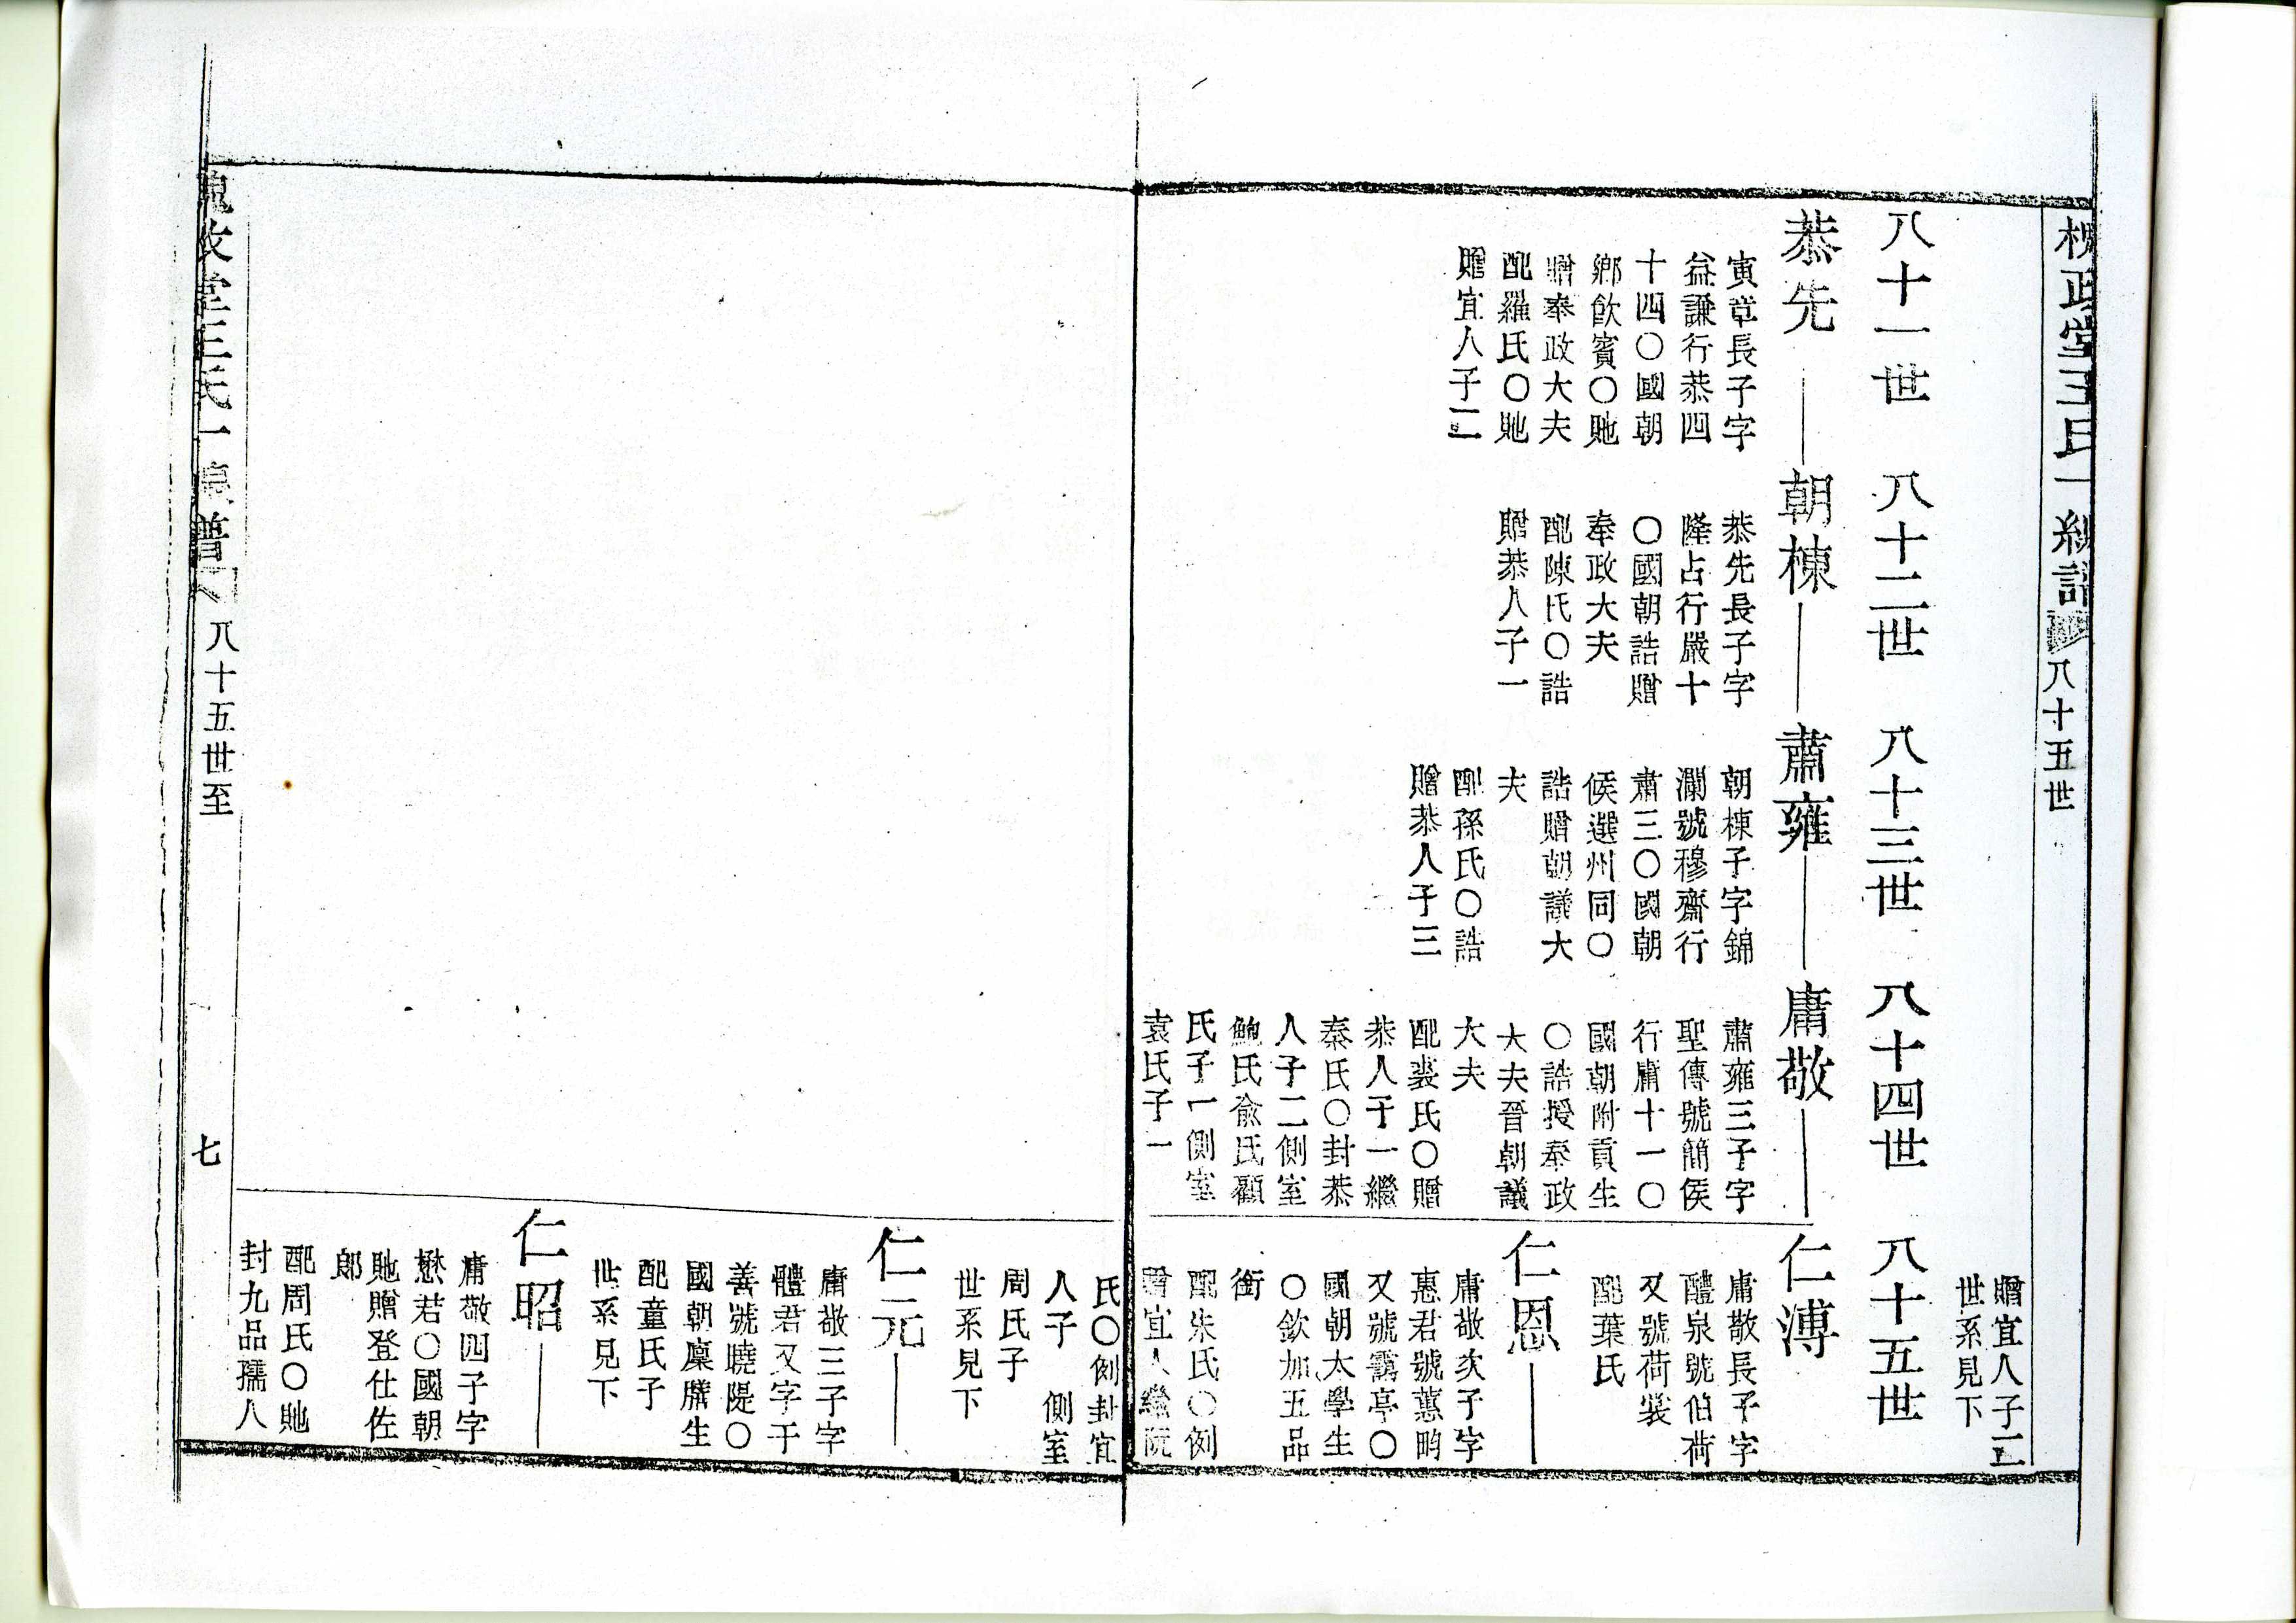 政堂王氏一綫譜
八十五世
贈宜人子二
世系見下
八十一世
八十二世
八十三世
八十四世
八十五世
恭先
寅章長子字
益謙行恭四
十四〇國朝
鄉飲賓〇貤
贈奉政大夫
配羅氏〇貤
贈宜人子二
朝棟
恭先長子字
隆占行嚴十
〇國朝誥贈
奉政大夫
配陳氏〇誥
贈恭人子一
肅雍
朝棟子字錦
瀾號穆齋行
肅三〇國朝
候選州同〇
誥贈朝議大
夫
配孫氏〇誥
贈恭人子三
庸敬
肅雍三子字
聖傳號簡侯
行庸十一〇
國朝附貢生
〇誥授奉政
大夫晉朝議
大夫
配裘氏〇贈
恭人子一繼
秦氏〇封恭
人子二側室
鮑氏俞氏顧
氏子一側室
袁氏子一
仁溥
庸敬長子字
醴泉號伯荷
又號荷裳
配葉氏
仁恩
庸敬次子字
惠君號蕙畇
又號靄亭〇
國朝太學生
〇欽加五品
銜
配朱氏〇例
贈宜人繼阮
氏〇例封宜
人子 側室
周氏子
世系見下
仁元
庸敬三子字
體君又字于
善號曉隄〇
國朝廩膳生
配童氏子
世系見下
仁昭
庸敬四子字
懋若〇國朝
貤贈登仕佐
郎
配周氏〇貤
封九品孺人
堂王氏一 譜
八十五世至
七